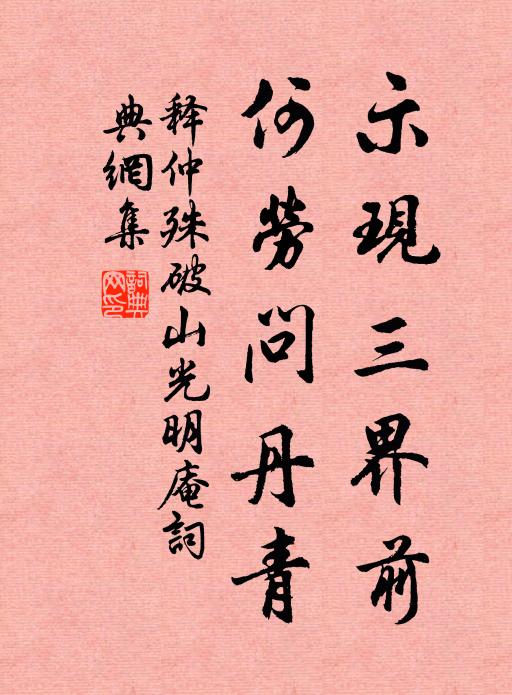 示現三界前
何勞問丹青
释仲殊破山光明庵詞
典網集
詞典网印